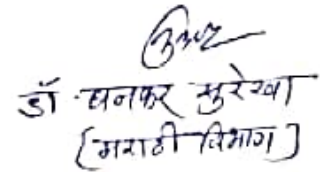 डॉ. घनकर सुरेखा
[मराठी विभाग]